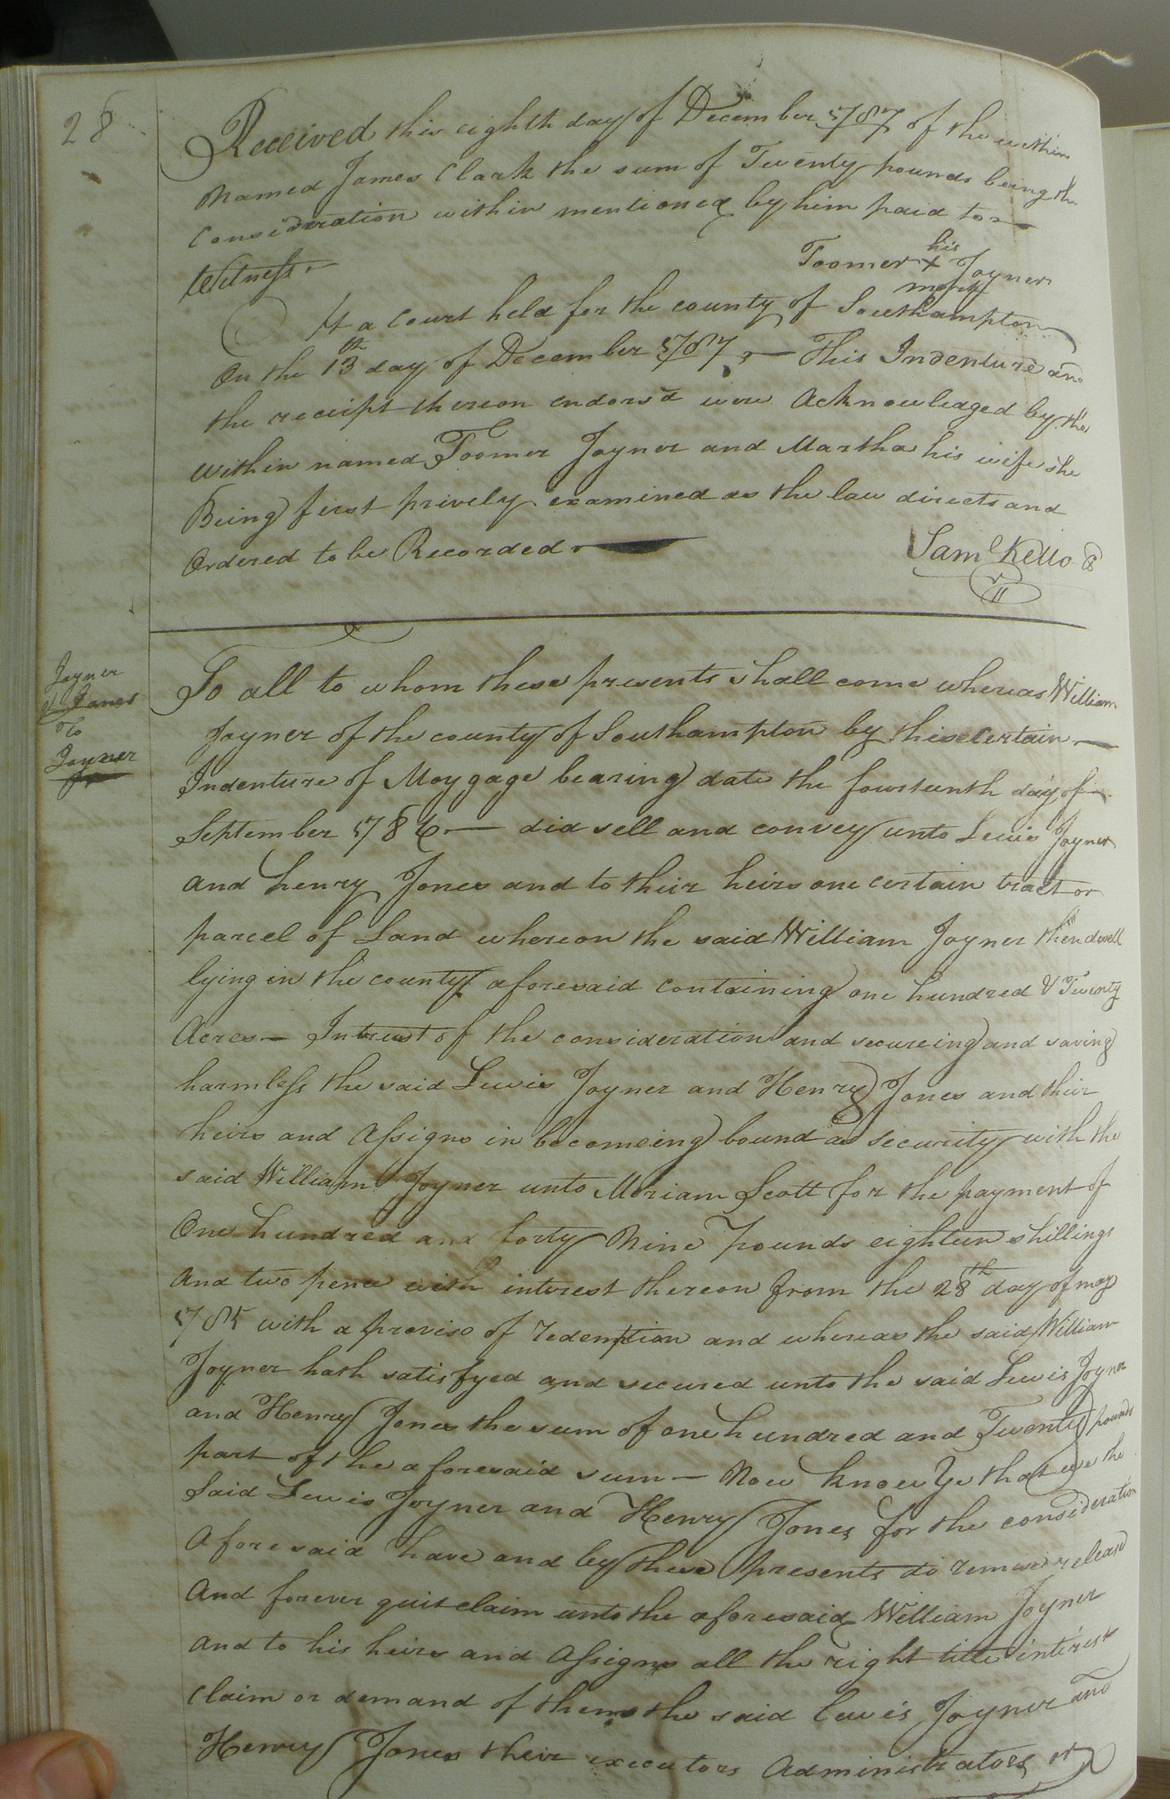 28
Received this eighth day of December 1787 of the within
Named James Clark the sum of Twenty pounds being the
Consideration within mentioned by him paid to
Witness
his
Toomer + Joyner
mark
At a Court held for the county of Southampton
On the 13th day of December 1787 This Indenture and
the receipt thereon endorsd were Acknowledged by the
Within named Toomer Joyner and Martha his wife she
Being first prively examined as the law directs and
Ordered to be Recorded
Saml Kello
Joyner
& Jones
To
Joyner
To all to whom these presents shall come whereas William
Joyner of the county of Southampton by his certain
Indenture of Moygage bearing date the fourteenth day of
September 1786 did sell and convey unto Lewis Joyner
and henry Jones and to their heirs one certain tract or
parcel of Land whereon the said William Joyner then dwell
lying in the county aforesaid containing one hundred & Twenty
Acres Intrust of the consideration and secureing and saving
harmless the said Lewis Joyner and Henry Jones and their
heirs and Assigns in becomeing bound as security with the
said William Joyner unto Miriam Scott for the payment of
One hundred and forty Nine Pounds eighteen shillings
And two pence with interest thereon from the 28th day of may
1785 with a proviso of redemption and whereas the said William
Joyner hath satisfyed and secured unto the said Lewis Joyner
and Henry Jones the sum of one hundred and Twenty pounds
part of the aforesaid sum Now know Ye that we the
Said Lewis Joyner and Henry Jones for the consideration
Aforesaid have and by these presents do remise release
And forever quit claim unto the aforesaid William Joyner
And to his heirs and Assigns all the right title interest
Claim or demand of them the said Lewis Joyner and
Henry Jones their executors Administrators